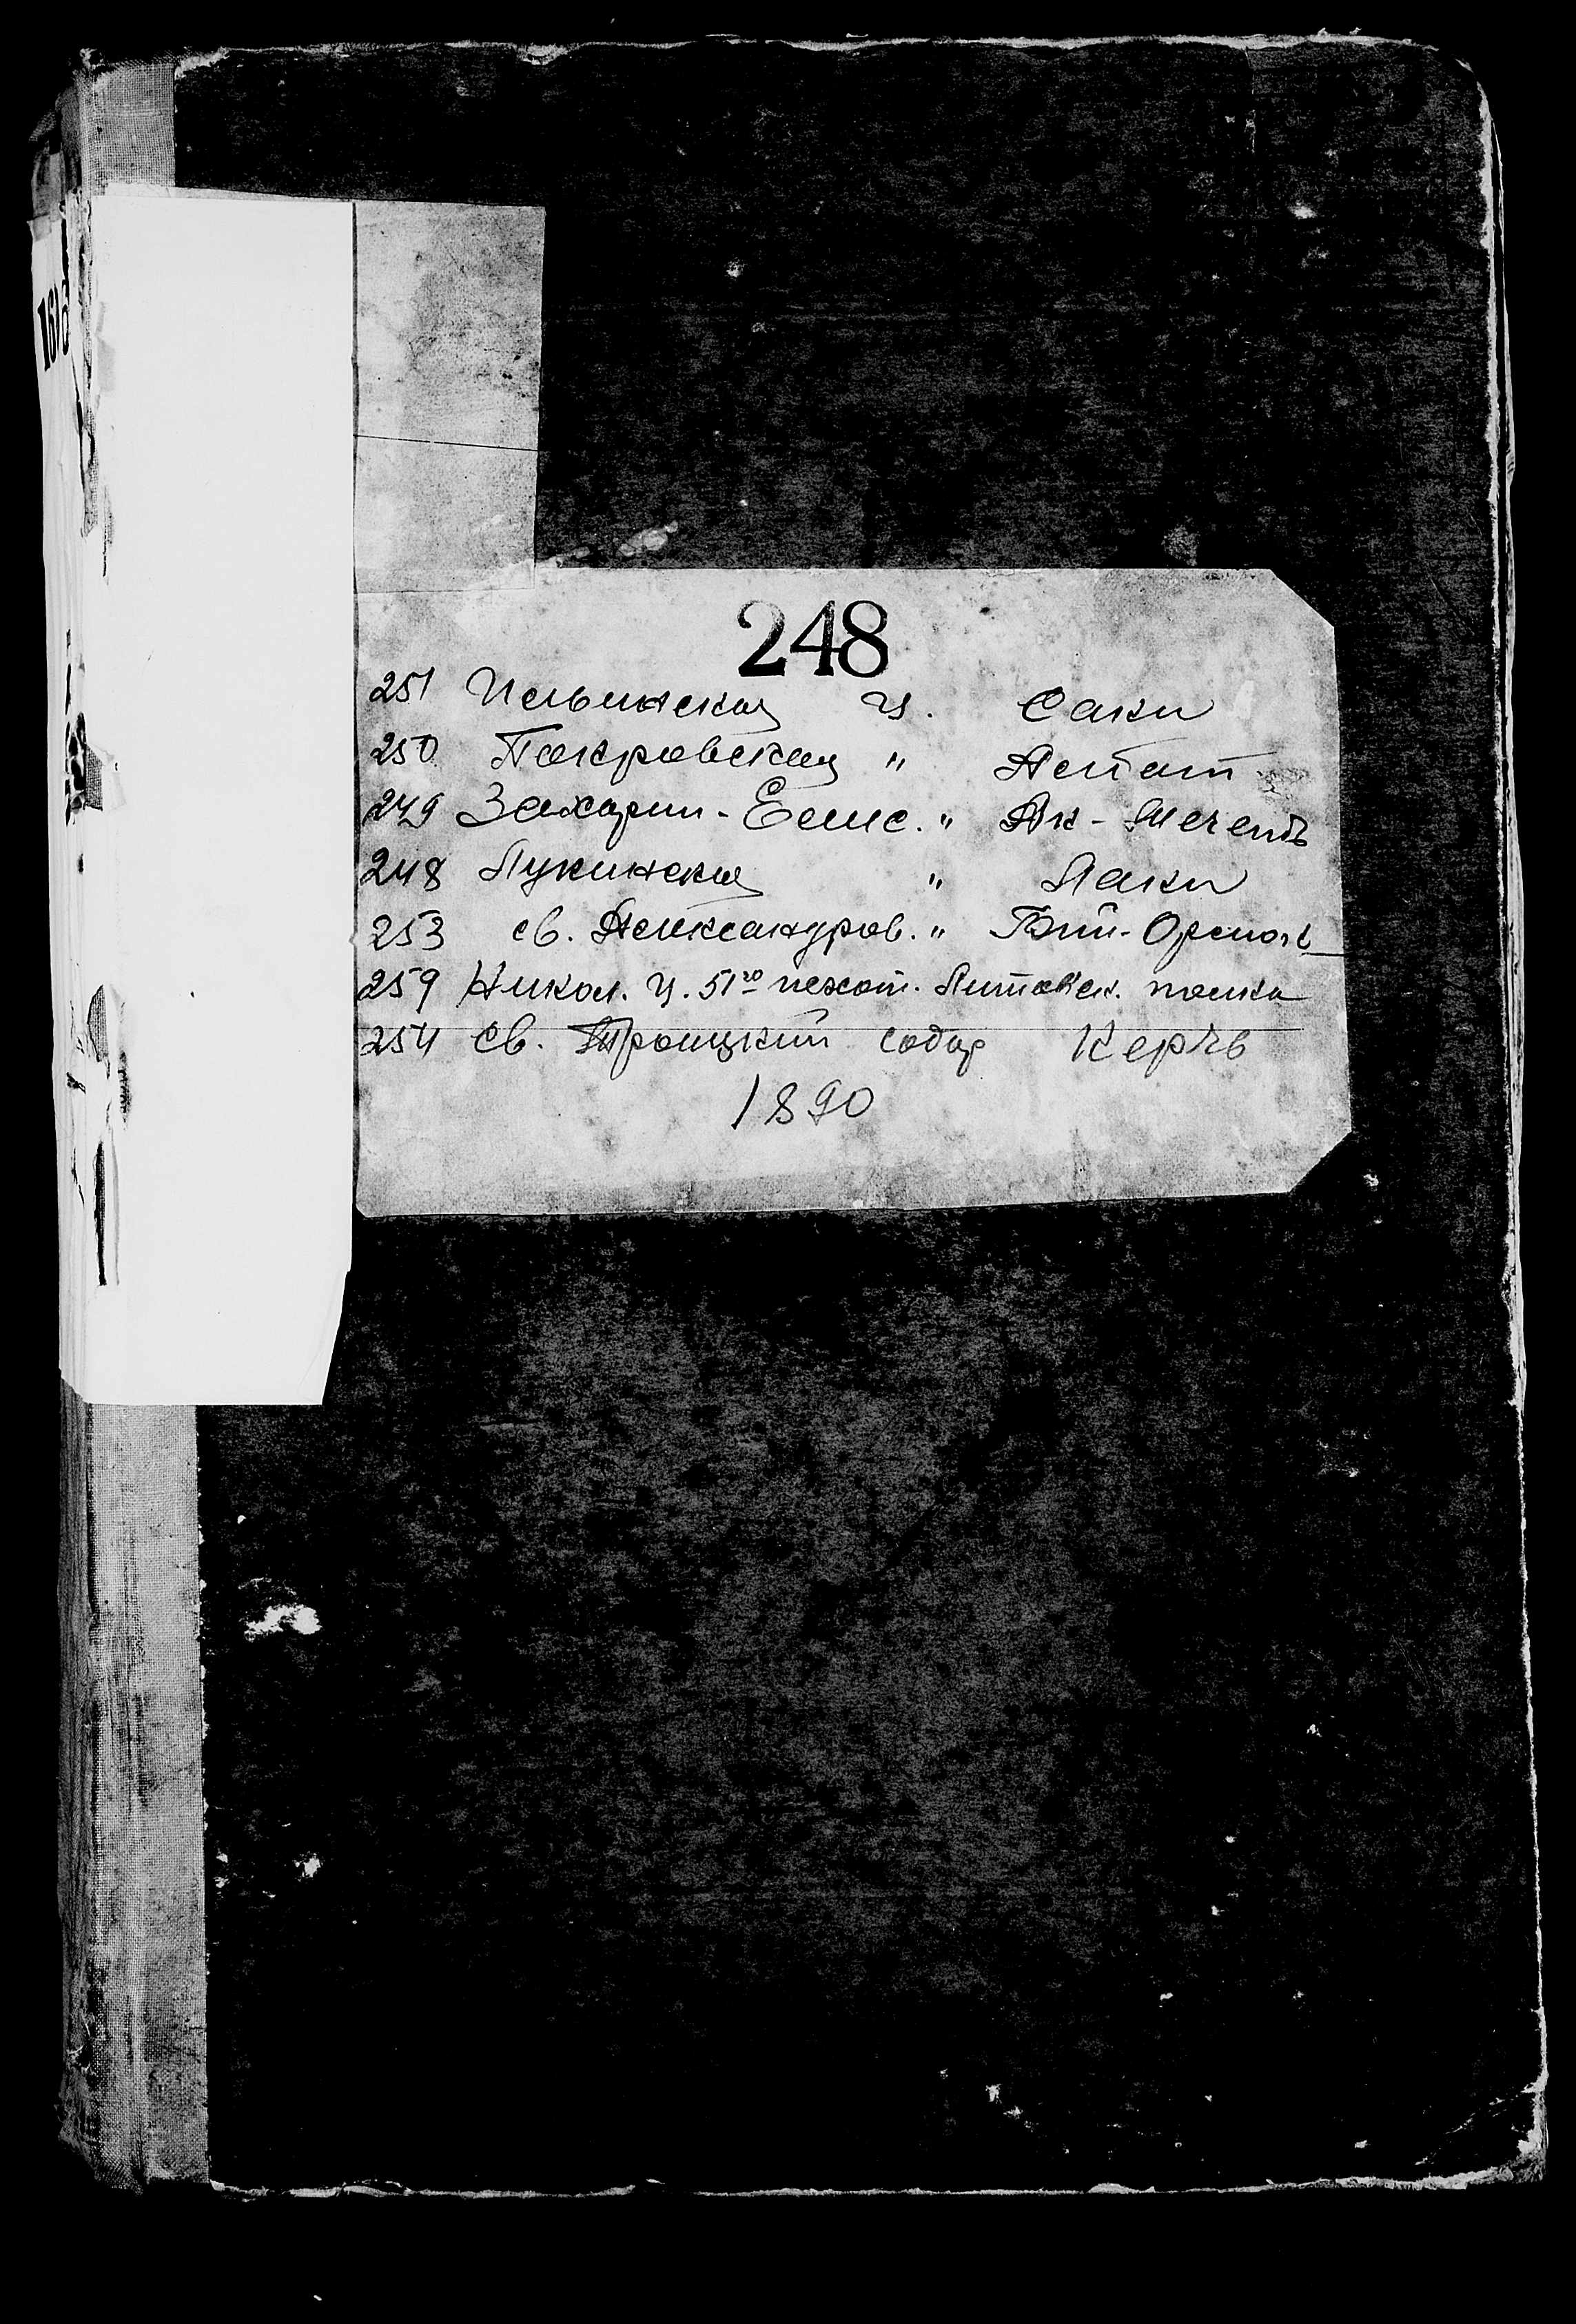 248
251 Ильинская ц. Саки
250 Покровская " Аспат
249 Захарии-Елис. " Ак-Мечеть
248 Лукинская " Лаки
253 св. Александров. " Бии-Орлюк
259 Никол. ц. 51го пехот. Литовск. полка
254 св. Троицкий собор Керчь
1890